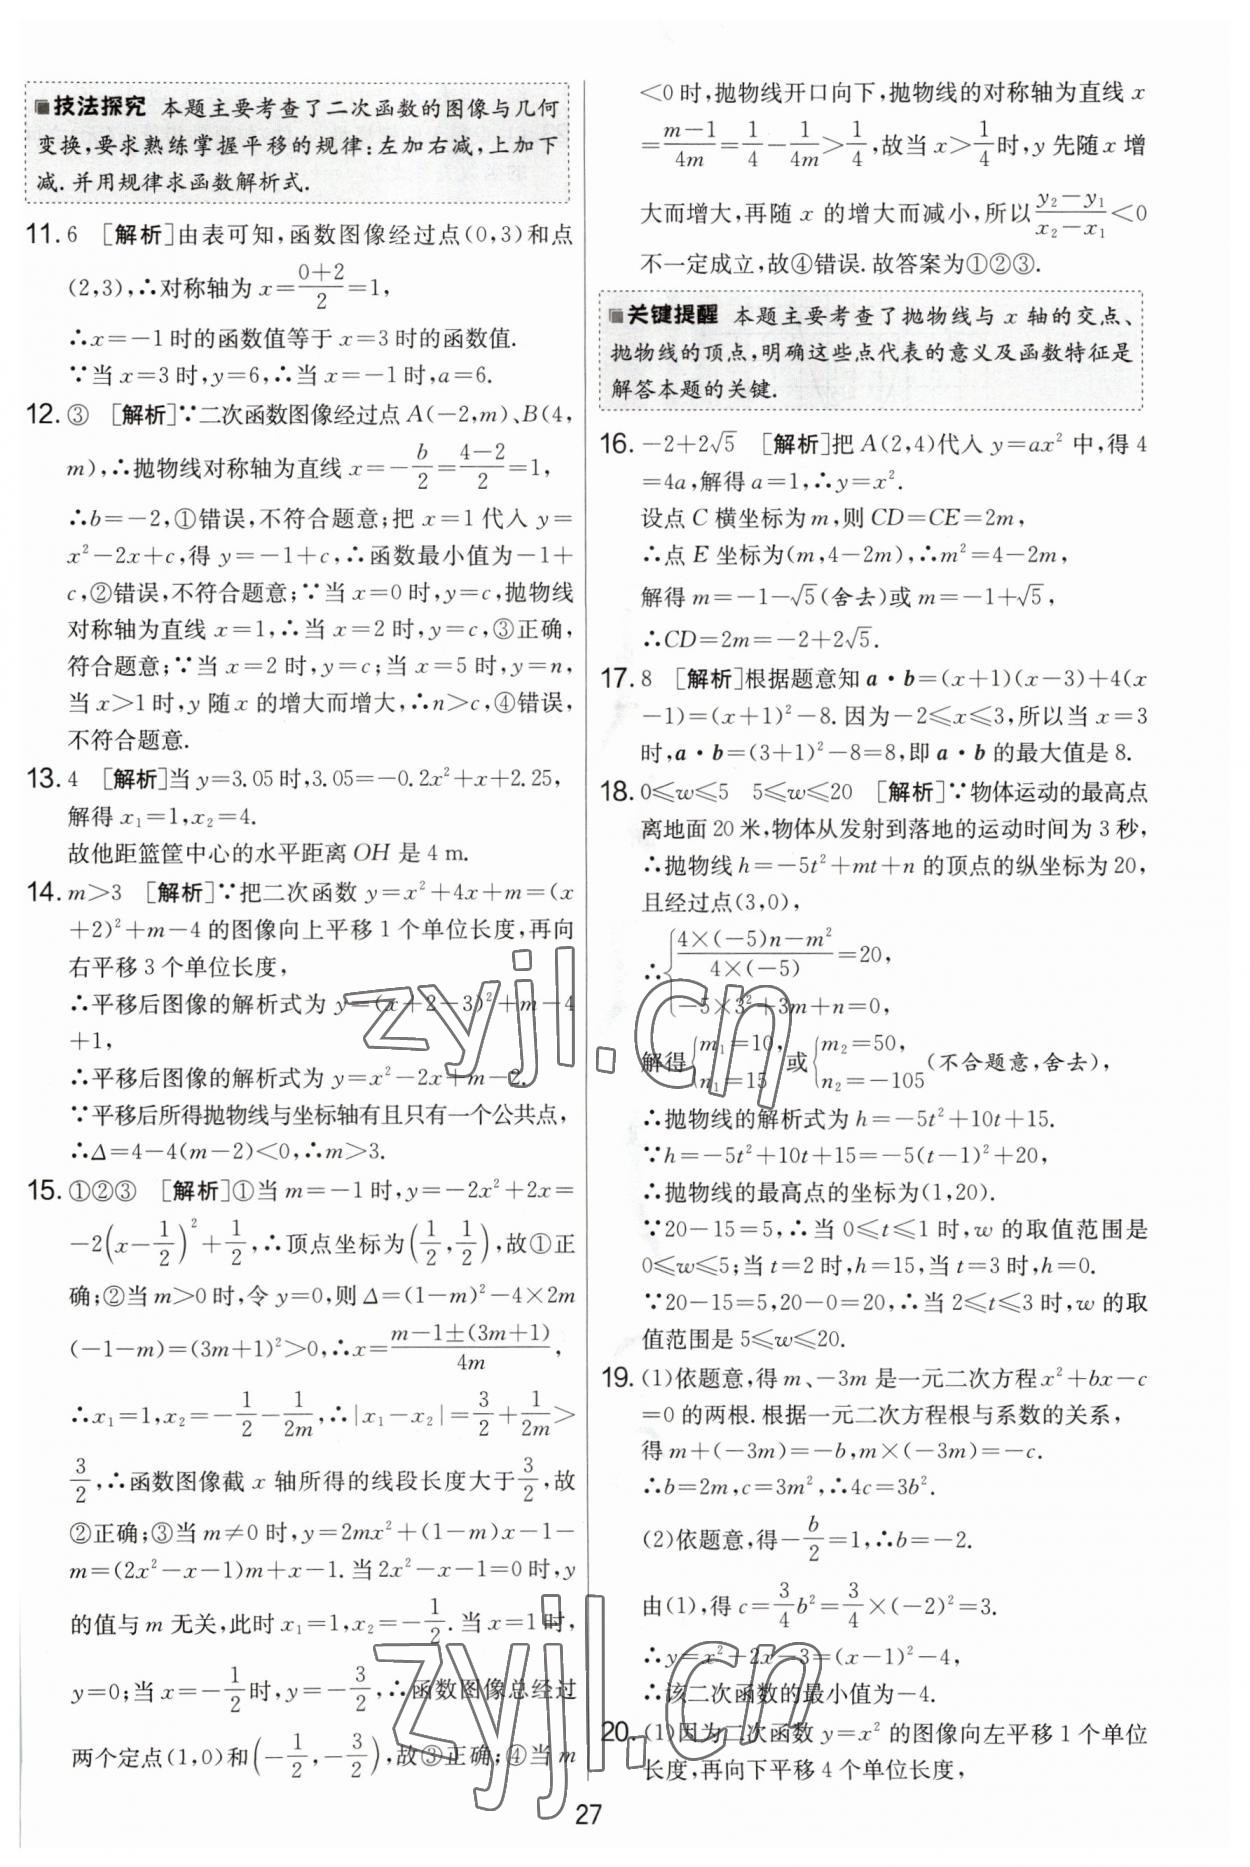 ■技法探究 本题主要考查了二次函数的图像与几何
变换,要求熟练掌握平移的规律:左加右减,上加下
减.并用规律求函数解析式.
11. 6 [解析]由表可知,函数图像经过点(0,3)和点
(2,3),∴对称轴为 x=\frac{0+2}{2}=1,
∴x=-1时的函数值等于 x=3时的函数值.
∵当 x=3时,y=6,∴当 x=-1时,a=6.
12. ③ [解析]∵二次函数图像经过点 A(-2,m)、B(4,
m),∴抛物线对称轴为直线 x=-\frac{b}{2}=\frac{4-2}{2}=1,
∴b=-2,①错误,不符合题意;把 x=1代入 y=
x²-2x+c,得 y=-1+c,∴函数最小值为-1+
c,②错误,不符合题意;∵当 x=0时,y=c,抛物线
对称轴为直线 x=1,∴当 x=2时,y=c,③正确,
符合题意;∵当 x=2时,y=c;当 x=5时,y=n,
当 x>1时,y随x的增大而增大,∴n>c,④错误,
不符合题意.
13. 4 [解析]当 y=3.05时,3.05=-0.2x²+x+2.25,
解得 x₁=1,x₂=4.
故他距篮筐中心的水平距离 OH 是 4 m.
14. m>3 [解析]∵把二次函数 y=x²+4x+m=(x
+2)²+m-4的图像向上平移1个单位长度,再向
右平移3个单位长度,
∴平移后图像的解析式为 y=(x+2-3)²+m-4
+1,
∴平移后图像的解析式为 y=x²-2x+m-2.
∵平移后所得抛物线与坐标轴有且只有一个公共点,
∴Δ=4-4(m-2)<0,∴m>3.
15. ①②③ [解析]①当 m=-1时,y=-2x²+2x=
-2(x-\frac{1}{2})²+\frac{1}{2},∴顶点坐标为(\frac{1}{2},\frac{1}{2}),故①正
确;②当m>0时,令 y=0,则Δ=(1-m)²-4×2m
(-1-m)=(3m+1)²>0,∴x=\frac{m-1±(3m+1)}{4m},
∴x₁=1,x₂=-\frac{1}{2}-\frac{1}{2m},∴|x₁-x₂|=\frac{3}{2}+\frac{1}{2m}>
\frac{3}{2},∴函数图像截 x 轴所得的线段长度大于\frac{3}{2},故
②正确;③当 m≠0时,y=2mx²+(1-m)x-1-
m=(2x²-x-1)m+x-1.当2x²-x-1=0时,y
的值与m无关,此时 x₁=1,x₂=-\frac{1}{2}.当 x=1时,
y=0;当 x=-\frac{1}{2}时,y=-\frac{3}{2},∴函数图像总经过
两个定点(1,0)和(-\frac{1}{2},-\frac{3}{2}),故③正确;④当 m
<0时,抛物线开口向下,抛物线的对称轴为直线 x
=\frac{m-1}{4m}=\frac{1}{4}-\frac{1}{4m}>\frac{1}{4},故当 x>\frac{1}{4}时,y先随x增
大而增大,再随 x 的增大而减小,所以\frac{y₂-y₁}{x₂-x₁}<0
不一定成立,故④错误.故答案为①②③.
■关键提醒 本题主要考查了抛物线与 x 轴的交点、
抛物线的顶点,明确这些点代表的意义及函数特征是
解答本题的关键.
16. -2+2√5 [解析]把 A(2,4)代入 y=ax² 中,得4
=4a,解得 a=1,∴y=x².
设点 C 横坐标为m,则 CD=CE=2m,
∴点 E 坐标为(m,4-2m),∴m²=4-2m,
解得 m=-1-√5(舍去)或 m=-1+√5,
∴CD=2m=-2+2√5.
17. 8 [解析]根据题意知 a·b=(x+1)(x-3)+4(x
-1)=(x+1)²-8.因为-2≤x≤3,所以当 x=3
时,a·b=(3+1)²-8=8,即 a·b 的最大值是8.
18. 0≤w≤5 5≤w≤20 [解析]∵物体运动的最高点
离地面20米,物体从发射到落地的运动时间为3秒,
∴抛物线 h=-5t²+mt+n 的顶点的纵坐标为20,
且经过点(3,0),
∴{\frac{4×(-5)n-m²}{4×(-5)}=20,
-5×3²+3m+n=0,
解得{m₁=10, n₁=15 或{m₂=50, n₂=-105 (不合题意,舍去),
∴抛物线的解析式为 h=-5t²+10t+15.
∵h=-5t²+10t+15=-5(t-1)²+20,
∴抛物线的最高点的坐标为(1,20).
∵20-15=5,∴当 0≤t≤1时,w 的取值范围是
0≤w≤5;当 t=2时,h=15,当 t=3时,h=0.
∵20-15=5,20-0=20,∴当2≤t≤3时,w的取
值范围是 5≤w≤20.
19. (1)依题意,得 m、-3m 是一元二次方程 x²+bx-c
=0的两根.根据一元二次方程根与系数的关系,
得 m+(-3m)=-b,m×(-3m)=-c.
∴b=2m,c=3m²,∴4c=3b².
(2)依题意,得-\frac{b}{2}=1,∴b=-2.
由(1),得 c=\frac{3}{4}b²=\frac{3}{4}×(-2)²=3.
∴y=x²-2x-3=(x-1)²-4,
∴该二次函数的最小值为-4.
20. (1)因为二次函数 y=x² 的图像向左平移1个单位
长度,再向下平移4个单位长度,
27
zyjl.cn
zyjl.cn